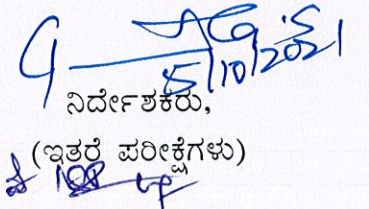 5/10/2021
ನಿರ್ದೇಶಕರು,
(ಇತರೆ ಪರೀಕ್ಷೆಗಳು)